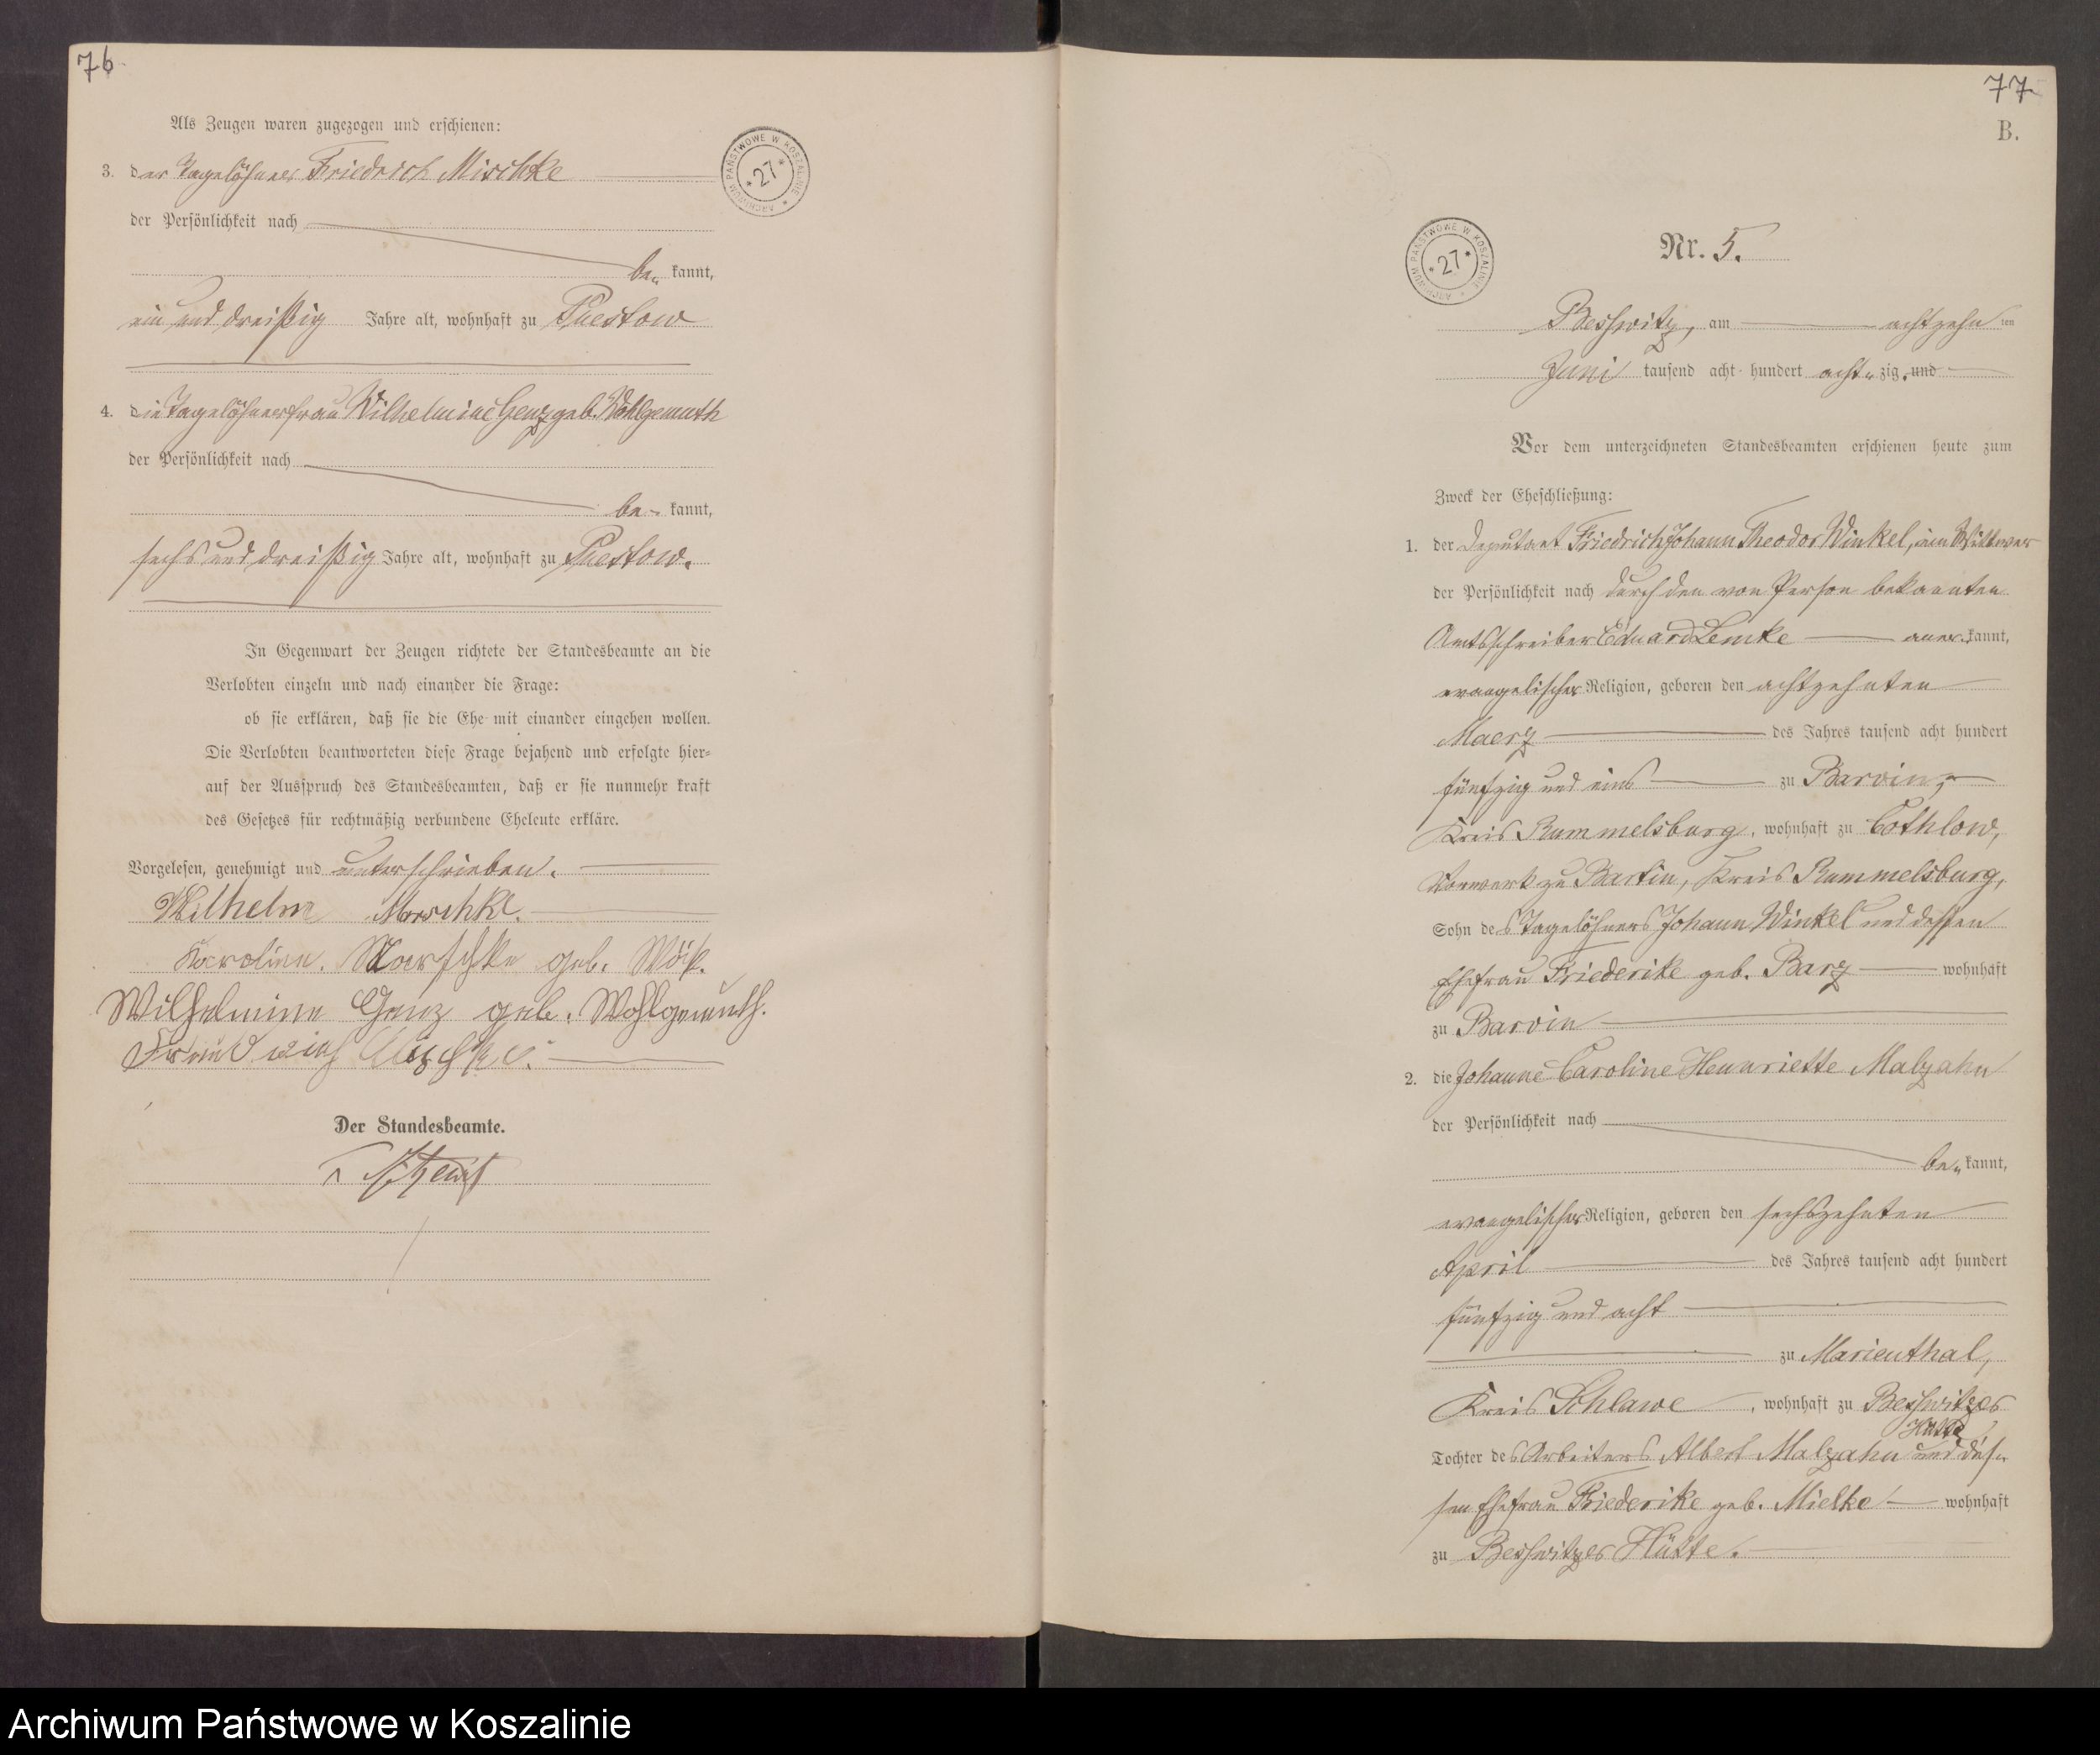 76
Als Zeugen waren zugezogen und erschienen:
3. der Tagelöhner Friedrich Mischke
der Persönlichkeit nach
be- kannt,
ein und dreißig Jahre alt, wohnhaft zu Puestow
4. die Tagelöhnerfrau Wilhelmine Genz geb. Wohlgemuth
der Persönlichkeit nach
be- kannt,
sechs und dreißig Jahre alt, wohnhaft zu Puestow.
In Gegenwart der Zeugen richtete der Standesbeamte an die
Verlobten einzeln und nach einander die Frage:
ob sie erklären, daß sie die Ehe mit einander eingehen wollen.
Die Verlobten beantworteten diese Frage bejahend und erfolgte hier-
auf der Ausspruch des Standesbeamten, daß er sie nunmehr kraft
des Gesetzes für rechtmäßig verbundene Eheleute erkläre.
Vorgelesen, genehmigt und unterschrieben.
Wilhelm Marschke.
Karoline. Marschke geb.
Wilhelmine Genz geb. Wohlgemuth.
Friedrich Mischke.
Der Standesbeamte.
ARCHIWUM PAŃSTWOWE W KOSZALINIE
* 27 *
77
B.
ARCHIWUM PAŃSTWOWE W KOSZALINIE
* 27 *
Nr. 5.
Beßwitz, am achtzehn ten
Juni tausend acht hundert acht- zig und
Vor dem unterzeichneten Standesbeamten erschienen heute zum
Zweck der Eheschließung:
1. der Deputant Friedrich Johann Theodor Winkel, ein Wittwer
der Persönlichkeit nach durch den von Person bekannten
Amtsschreiber Eduard Lemke aner- kannt,
evangelischer Religion, geboren den achtzehnten
Maerz des Jahres tausend acht hundert
fünfzig und eins zu Barvin,
Kreis Rummelsburg, wohnhaft zu Cothlow,
Vorwerk zu Bartin, Kreis Rummelsburg,
Sohn des Tagelöhners Johann Winkel und dessen
Ehefrau Friederike geb. Barz wohnhaft
zu Barvin
2. die Johanne Caroline Henriette Malzahn
der Persönlichkeit nach
be- kannt,
evangelischer Religion, geboren den sechszehnten
April des Jahres tausend acht hundert
fünfzig und acht
zu Marienthal,
Kreis Schlawe, wohnhaft zu Beßwitzer
Hütte
Tochter des Arbeiters Albert Malzahn und des-
sen Ehefrau Friederike geb. Mielke wohnhaft
zu Beßwitzer Hütte.
Archiwum Państwowe w Koszalinie